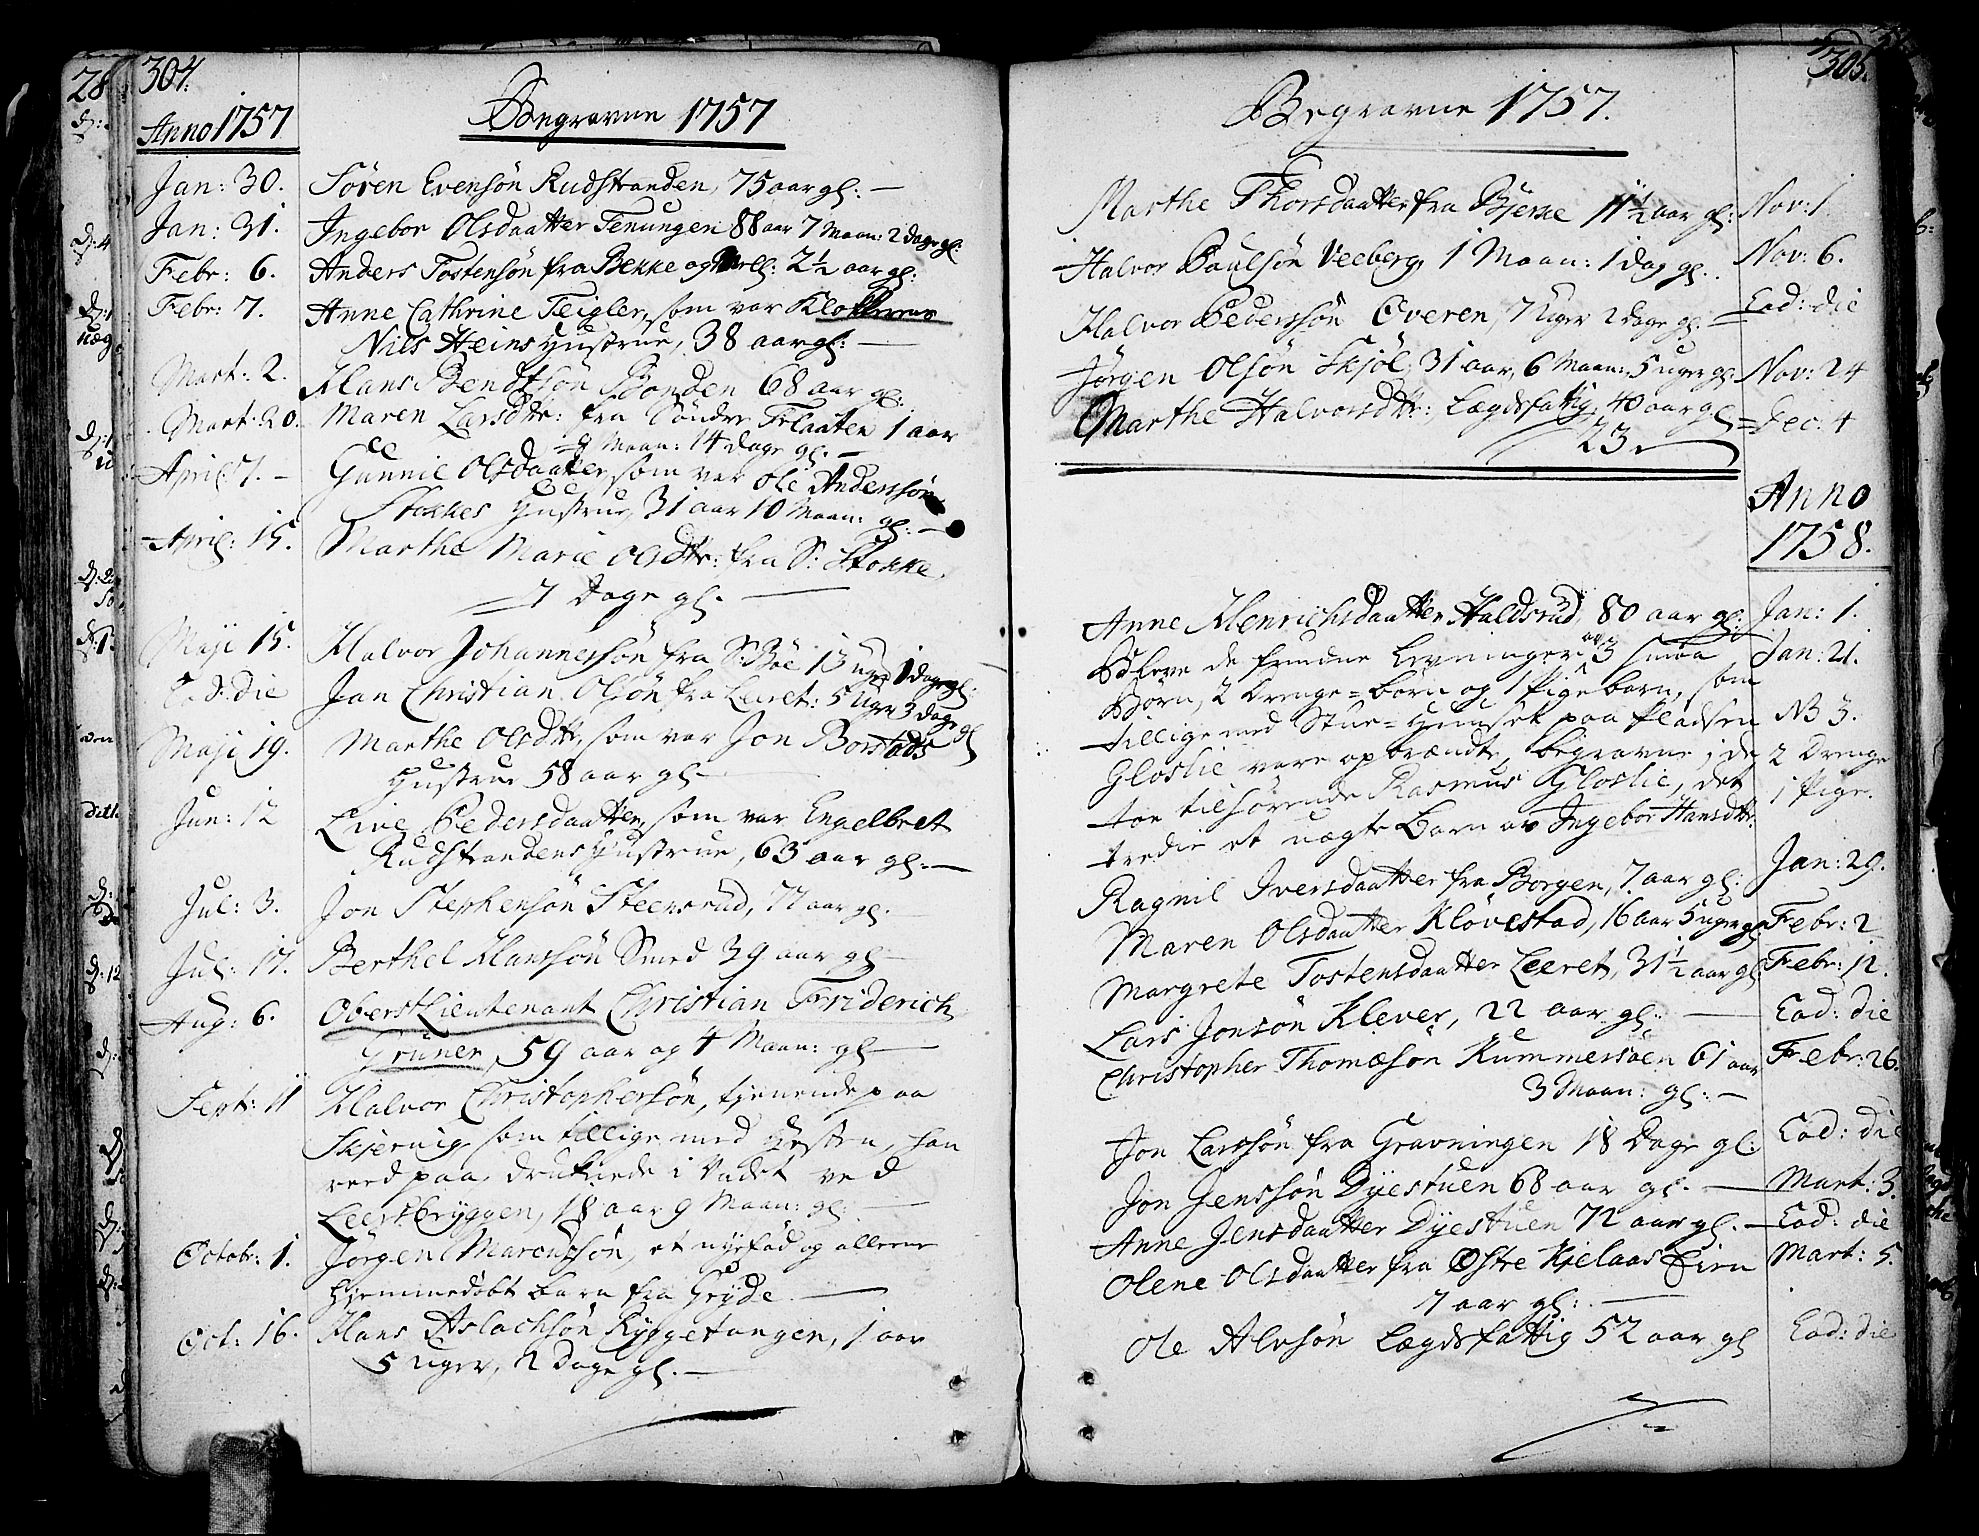 304.
Anno 1757
Begravne 1757
Jan: 30. Søren Evensøn Rudstranden, 75 aar gl: —
Jan: 31. Ingebor Olsdaatter Tenungen 88 aar 7 Maan: 2 dage gl:
Febr: 6. Anders Tostensøn fra Bekke og 2½ aar gl:
Febr: 7. Anne Cathrine Teigler, som var Klokkerens
Niels Heins Hustrue, 38 aar gl: —
Mart: 2. Hans Bendtsøn Bonden 68 aar gl:
Mart: 20. Maren Larsdtr: fra Søndre Flaaten 1 aar
9 Maan: 14 dage gl: —
April 7. — Gunnil Olsdaatter, som var Ole Anderssøn
Stokkes Hustrue, 31 aar 10 Maan: gl: —
April: 15. Marthe Marie Olsdtr: fra S: Stokke,
7 Dage gl. —
Maji 15. Halvor Johannessøn fra S: Bøe 13 uger 1 dag gl:
Ead: die Jan Christian Olsøn fra Leeret: 5 Uger 3 dage gl
Maji 19. Marthe Olsdtr, som var Jon Borstads
Hustrue 58 aar gl —
Jun: 12 Live Pedersdaatter, som var Engelbret
Rudstrandens Hustrue, 63 aar gl. —
Jul: 3. Jon Stephensøn Steensrud, 77 aar gl. —
Jul: 17. Berthel Hanssøn Smed 39 aar gl —
Aug: 6. Oberst Lieutenant Christian Friderich
Grüner, 59 aar og 4 Maan: gl —
Sept: 11 Halvor Christophersøn, tjenende paa
Skjervig, som tillige med Hesten, han
reed paa, druknede i Vadet ved
Leersbryggen, 18 aar 9 Maan: gl: —
Octobr: 1. Jørgen Marcussøn, et nyefød og allene
hjemmedøbt barn fra Gryde. —
Oct: 16. Hans Aslachsøn Ryggetangen, 1 aar
5 Uger, 2 Dage gl. —
305.
Begravne 1757.
Marthe Thorsdaatter fra Bjerke 11½ aar gl: Nov: 1.
Halvor Paulsøn Veeberg, 1 Maan: 1 dag gl: Nov: 6.
Halvor Pederssøn Overen, 7 Uger 2 dage gl: Ead: die
Jørgen Olsøn Skjøl, 31 aar, 6 Maan: 5 uger gl: Nov: 24
Marthe Halvorsdtr: Lægdsfattig, 40 aar gl = Dec: 4
23
Anno
1758.
Anne Henrichsdaatter Haldsrud, 80 aar gl: Jan: 1.
Bleve de fundne Levninger av 3 smaa Jan: 21.
Børn, 2 Drenge=børn og 1 Pigebarn, som
tillige med Stue=Huuset paa Pladsen NB 3.
Gloslie vare opbrændte, begravne; de 2 Drenge
toe tilhørende Rasmus Gloslie, det 1 Pige.
tredie et uægte Barn av Ingebor Hansdtr.
Ragnil Iversdaatter fra Borgen, 7 aar gl: Jan: 29.
Maren Olsdaatter Kløvestad, 16 aar 5 uger gl Febr: 2
Margrete Tostensdaatter Leeret, 31½ aar gl Febr: 12.
Lars Jonsøn Klever, 22 aar gl: — Ead: die
Christopher Thomæsøn Kummersøen 61 aar Febr: 26.
3 Maan: gl: —
Jon Larssøn fra Gravningen 18 Dage gl: Ead: die
Jon Jenssøn Dyestuen 68 aar gl. — Mart: 3.
Anne Jensdaatter Dyestuen 72 aar gl. — Ead: die
Olene Olsdaatter fra Østre Kjelaas Eien Mart: 5.
7 aar gl: —
Ole Alvsøn Lægdsfattig 52 aar gl Ead: die